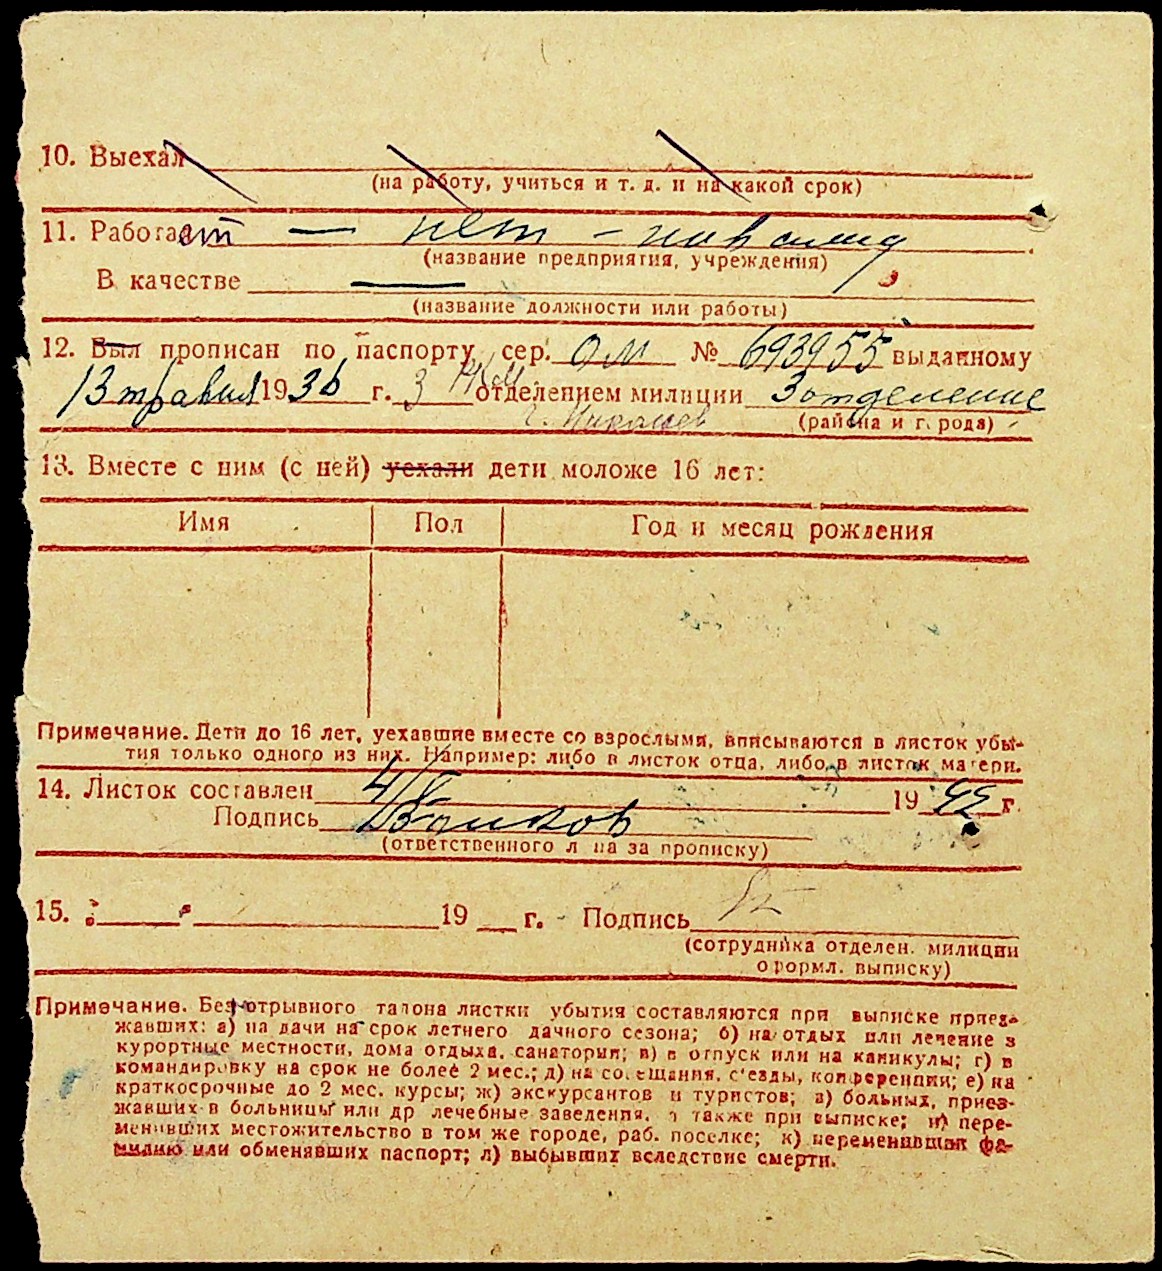 10. Выехал
(на работу, учиться и т. д. и на какой срок)
11. Работает — нет — инвалид
(название предприятия, учреждения)
В качестве —
(название должности или работы)
12. Был прописан по паспорту сер. ОМ № 693955 выданному
13 травня 1936 г. 3 РКМ отделением милиции 3 отделение
г. Николаев (района и города)
13. Вместе с ним (с ней) уехали дети моложе 16 лет:
Имя Пол Год и месяц рождения
Примечание. Дети до 16 лет, уехавшие вместе со взрослыми, вписываются в листок убы-
тия только одного из них. Например: либо в листок отца, либо в листок матери.
14. Листок составлен 4/8 1944 г.
Подпись
(ответственного лица за прописку)
15. 19 г. Подпись
(сотрудника отделен. милиции
оформл. выписку)
Примечание. Без отрывного талона листки убытия составляются при выписке приез-
жавших: а) на дачи на срок летнего дачного сезона; б) на отдых или лечение в
курортные местности, дома отдыха, санатории; в) в отпуск или на каникулы; г) в
командировку на срок не более 2 мес.; д) на совещания, с'езды, конференции; е) на
краткосрочные до 2 мес. курсы; ж) экскурсантов и туристов; з) больных, приез-
жавших в больницы или др лечебные заведения, а также при выписке; и) пере-
менивших местожительство в том же городе, раб. поселке; к) переменивших фа-
милию или обменявших паспорт; л) выбывших вследствие смерти.